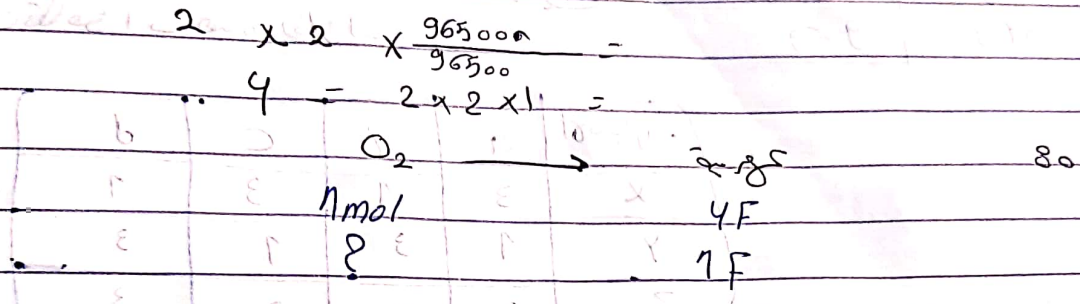 2 × 2 × 96500/96500 =
4 = 2 × 2 × 1 =
O₂ → 80
1mol 4F
? 1F